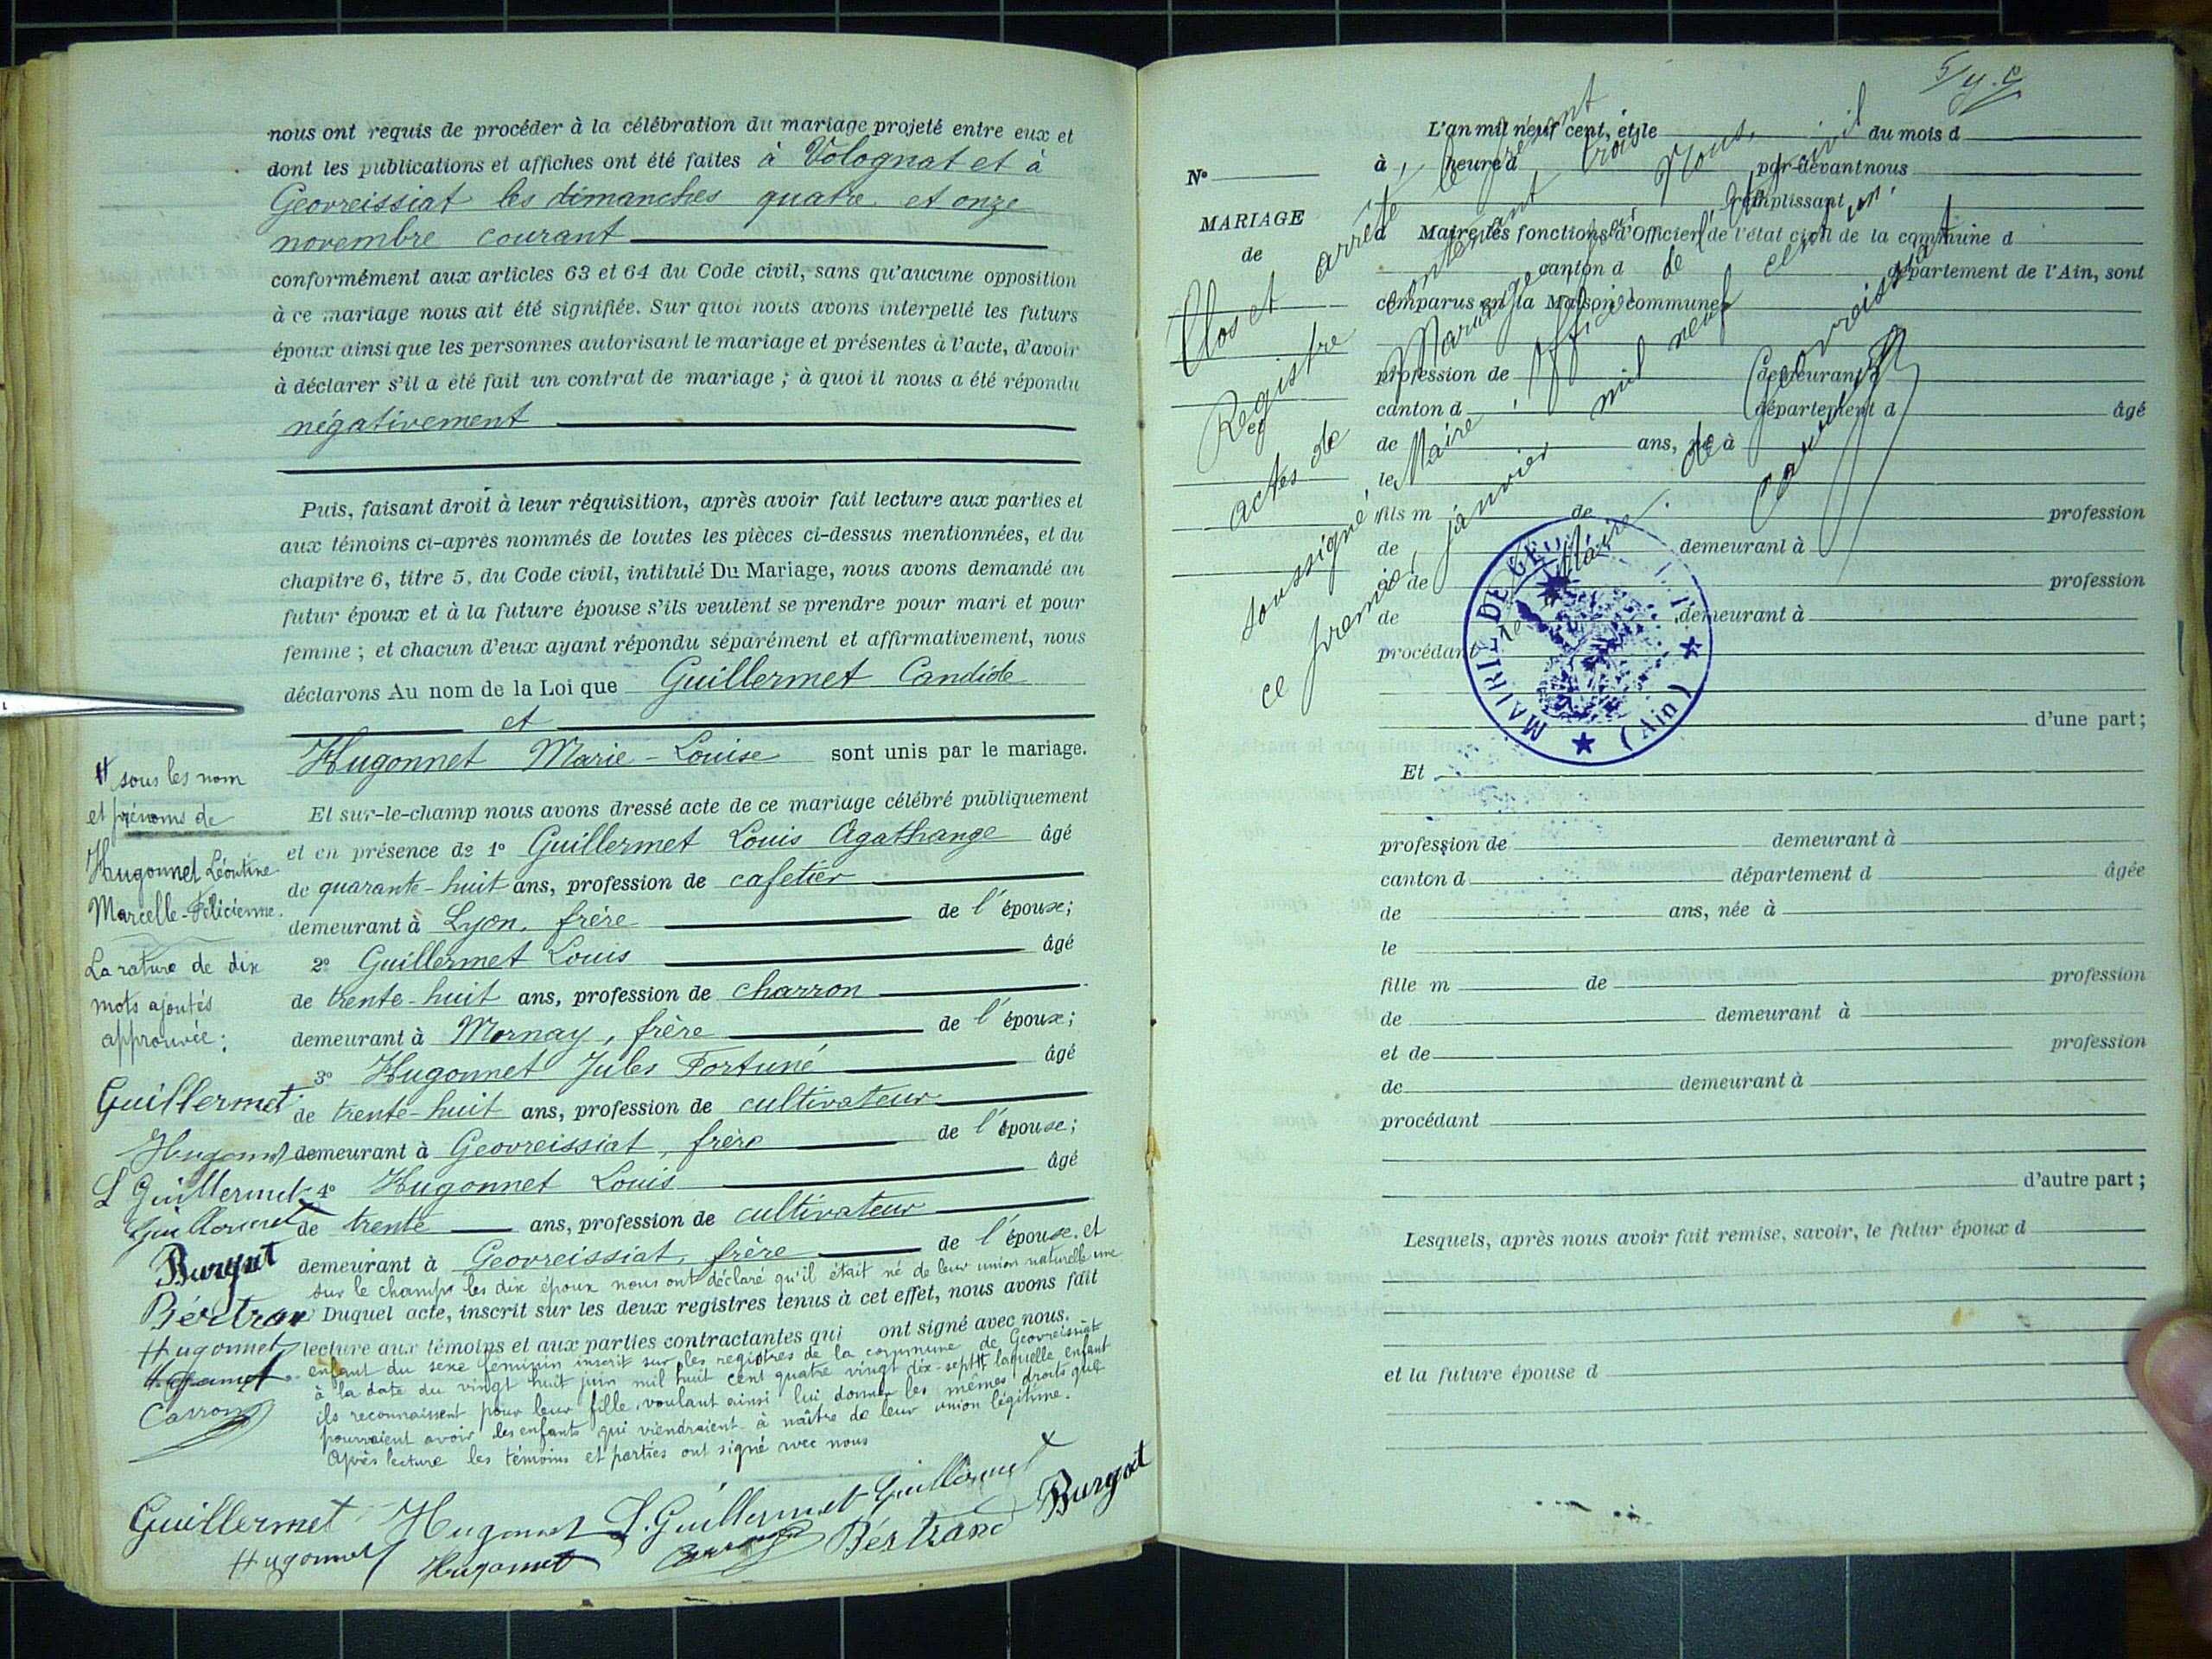 nous ont requis de procéder à la célébration du mariage projeté entre eux et
dont les publications et affiches ont été faites à Volognat et à
Geovreissiat les dimanches quatre et onze
novembre courant
conformément aux articles 63 et 64 du Code civil, sans qu'aucune opposition
à ce mariage nous ait été signifiée. Sur quoi nous avons interpellé les futurs
époux ainsi que les personnes autorisant le mariage et présentes à l'acte, d'avoir
à déclarer s'il a été fait un contrat de mariage ; à quoi il nous a été répondu
négativement
Puis, faisant droit à leur réquisition, après avoir fait lecture aux parties et
aux témoins ci-après nommés de toutes les pièces ci-dessus mentionnées, et du
chapitre 6, titre 5, du Code civil, intitulé Du Mariage, nous avons demandé au
futur époux et à la future épouse s'ils veulent se prendre pour mari et pour
femme ; et chacun d'eux ayant répondu séparément et affirmativement, nous
déclarons Au nom de la Loi que Guillermet Candide
et
Hugonnet Marie-Louise sont unis par le mariage.
Et sur-le-champ nous avons dressé acte de ce mariage célébré publiquement
et en présence de 1° Guillermet Louis Agathange âgé
de quarante-huit ans, profession de cafetier
demeurant à Lyon, frère de l'époux;
2° Guillermet Louis âgé
de trente-huit ans, profession de charron
demeurant à Mornay, frère de l'époux;
3° Hugonnet Jules Fortuné âgé
de trente-huit ans, profession de cultivateur
demeurant à Geovreissiat, frère de l'épouse;
4° Hugonnet Louis âgé
de trente ans, profession de cultivateur
demeurant à Geovreissiat, frère de l'épouse. et
sur le champ les dix époux nous ont déclaré qu'il était né de leur union naturelle une
Duquel acte, inscrit sur les deux registres tenus à cet effet, nous avons fait
lecture aux témoins et aux parties contractantes qui ont signé avec nous.
enfant du sexe féminin inscrit sur les registres de la commune de Geovreissiat
à la date du vingt huit juin mil huit cent quatre vingt dix-sept # laquelle enfant
ils reconnaissent pour leur fille voulant ainsi lui donner les mêmes droits que
pourraient avoir les enfants qui viendraient à naître de leur union légitime.
Après lecture les témoins et parties ont signé avec nous
Guillermet Hugonnet L. Guillermet Guillermet Burgod
Hugonnet Hugonnet Bertrand
# sous les nom
et prénoms de
Hugonnet Léontine
Marcelle-Félicienne.
La rature de dix
mots ajoutés
approuvée:
Guillermet
Hugonnet
L Guillermet
Guillermet
Burgod
Bertrand
Hugonnet
Hugonnet
Carron
N°
MARIAGE
de
et
L'an mil neuf cent, et le du mois d
à heure d par-devant nous
remplissant
d Maire les fonctions d'Officier de l'état civil de la commune d
canton d département de l'Ain, sont
comparus en la Maison commune
profession de demeurant à
canton d département d âgé
de ans, né à
le
fils m de profession
de demeurant à
et de profession
de demeurant à
procédant
d'une part;
Et
profession de demeurant à
canton d département d âgée
de ans, née à
le
fille m de profession
de demeurant à
et de profession
de demeurant à
procédant
d'autre part;
Lesquels, après nous avoir fait remise, savoir, le futur époux d
et la future épouse d
Clos et arrêté le présent
Registre contenant trois
actes de Mariage Nous,
soussigné, Maire, Officier de l'état civil
ce premier janvier mil neuf cent un.
le Maire de Geovreissiat
MAIRIE DE GE
(Ain)